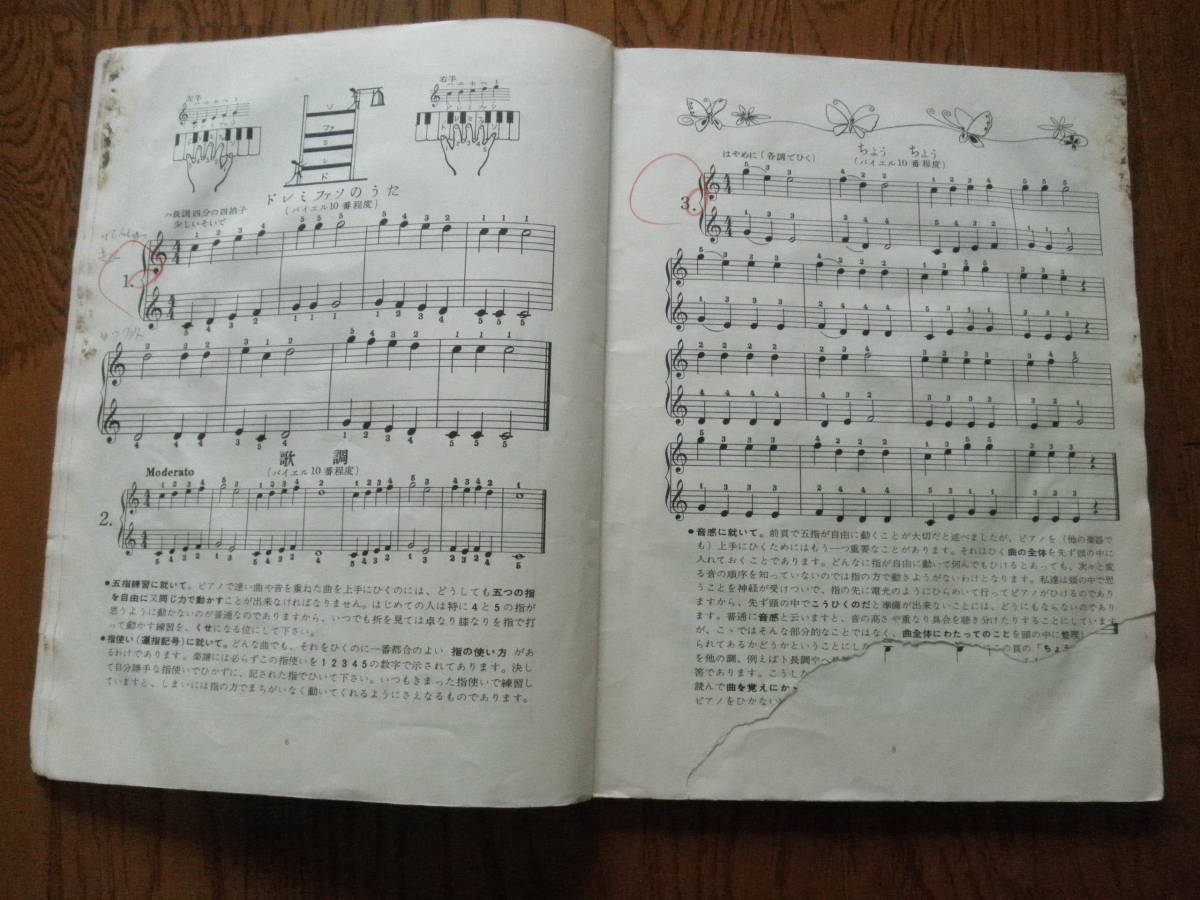 左手
右手
ソ
ファ
ミ
レ
ド
ドレミファソのうた
(バイエル10番程度)
ハ長調 四分の四拍子
少しいそいで
1.
歌調
(バイエル10番程度)
Moderato
2.
●五指練習に就いて。ピアノで速い曲や音を重ねた曲を上手にひくのには、どうしても五つの指
を自由に又同じ力で動かすことが出来なければなりません。はじめての人は特に4と5の指が
思うように動かないのが普通なのでありますから、いつでも折を見ては卓なり膝なりを指で打
って動かす練習を、くせになる位にして下さい。
●指使い(運指記号)に就いて。どんな曲でも、それをひくのに一番都合のよい 指の使い方 があ
るわけであります。楽譜には必らずこの指使いを12345の数字で示されてあります。決し
て自分勝手な指使いでひかずに、記された指でひいて下さい。いつもきまった指使いで練習し
ていますと、しまいには指の方でまちがいなく動いてくれるようにさえなるものであります。
6
ちょう ちょう
(バイエル10番程度)
はやめに(各調でひく)
3.
●音感に就いて。前頁で五指が自由に動くことが大切だと述べましたが、ピアノを(他の楽器で
も)上手にひくためにはもう一つ重要なことがあります。それはひく曲の全体を先ず頭の中に
入れておくことであります。どんなに指が自由に動いて何んでもひけるとあっても、次々と変
る音の順序を知っていないのでは指の方で動きようがないわけとなります。私達は頭の中で思
うことを神経が受けついで、指の先に電光のようにひらめいて行ってピアノがひけるのであり
ますから、先ず頭の中でこうひくのだと準備が出来ないことには、どうにもならないのであり
ます。普通に音感と云いますと、音の高さや重なり具合を聴き分けたりすることにしています
が、こゝではそんな部分的なことではなく、曲全体にわたってのことを頭の中に整理
られてあるかどうかということにし
この頁の「ちょう
を他の調、例えばト長調や
答であります。こうし
読んで曲を覚えにか
ピアノをひかない
8